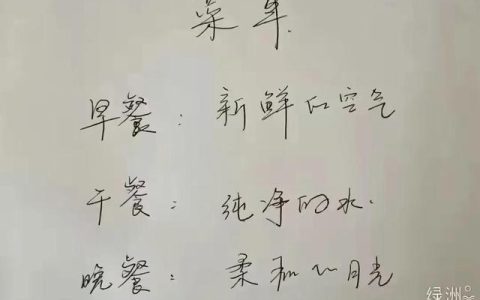 菜单
早餐：新鲜的空气
午餐：纯净的水.
晚餐：柔和的月光
绿洲